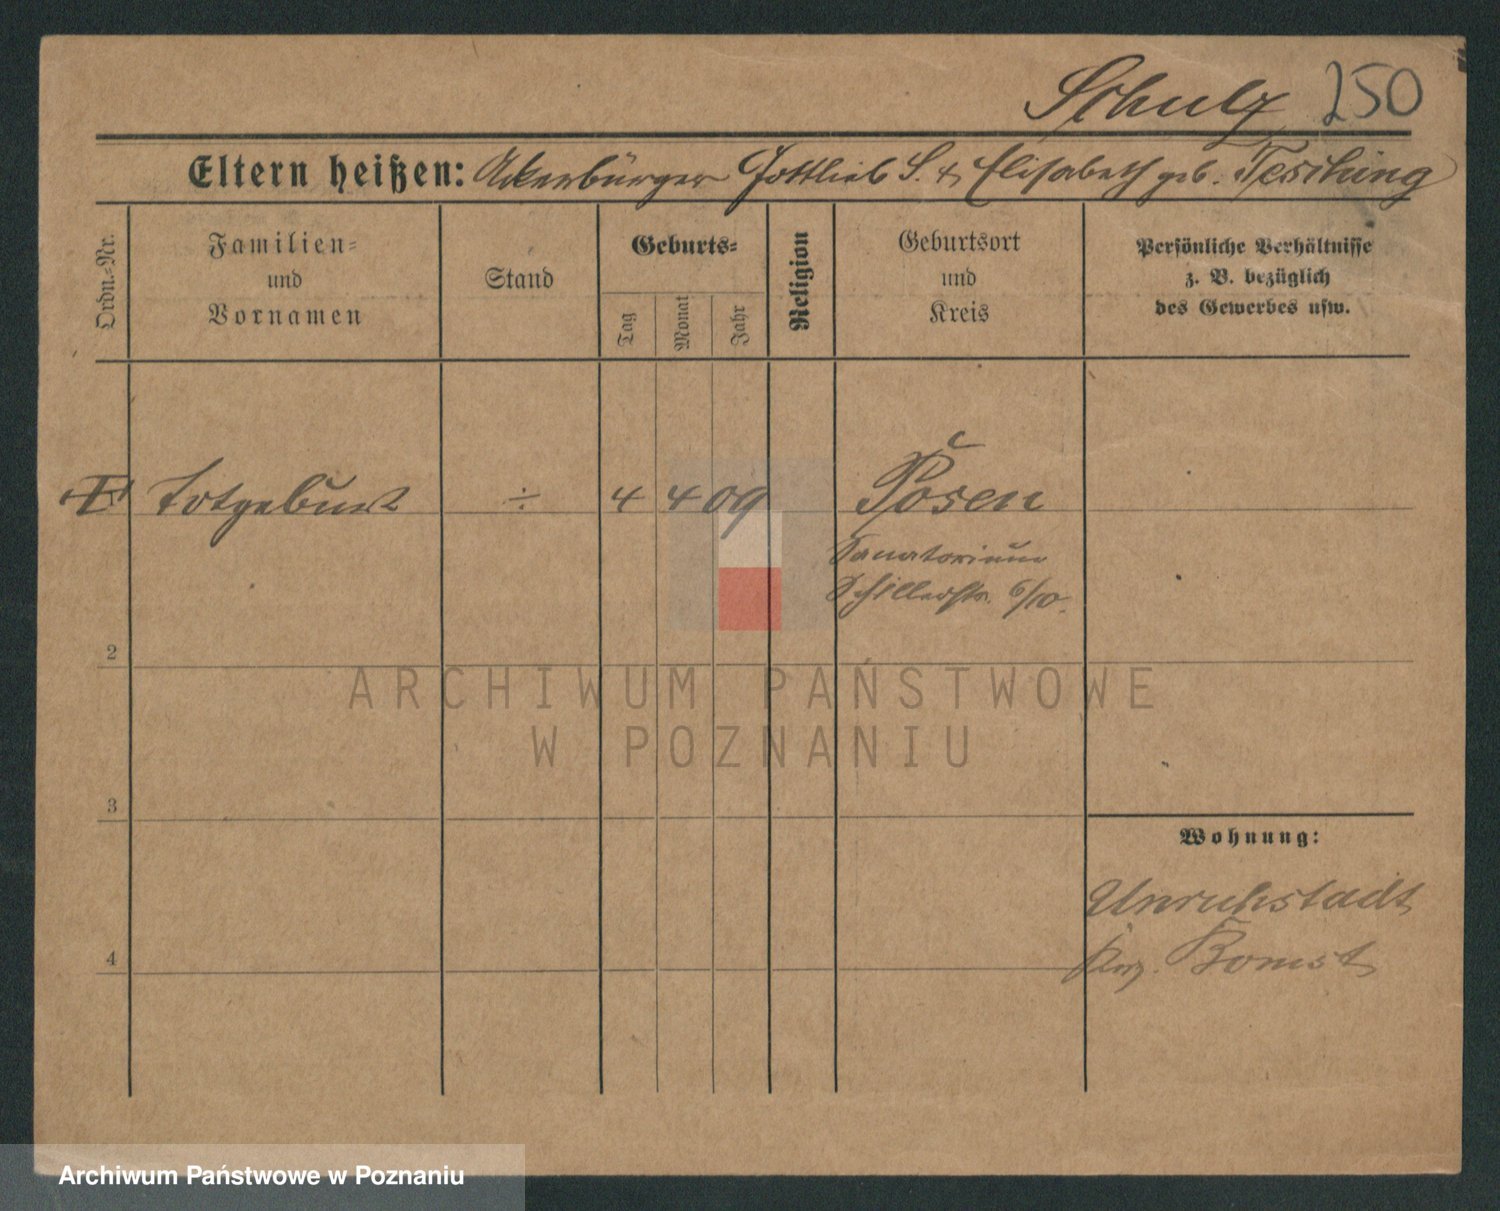 Schulz 250
Eltern heißen: Ackerbürger Gottlieb S. & Elisabeth geb. Tesching
Ordn.-Nr.
Familien-
und
Vornamen
Stand
Geburts-
Tag
Monat
Jahr
Religion
Geburtsort
und
Kreis
Persönliche Verhältnisse
z. B. bezüglich
des Gewerbes usw.
Totgeburt ÷ 4 4 09 Posen
Sanatorium
Schillerstr. 6/10.
2
ARCHIWUM PAŃSTWOWE
W POZNANIU
3
Wohnung:
Unruhstadt
4
Bomst
Archiwum Państwowe w Poznaniu